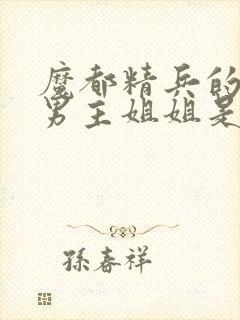 魔都精兵的
男主姐姐是
孫春祥